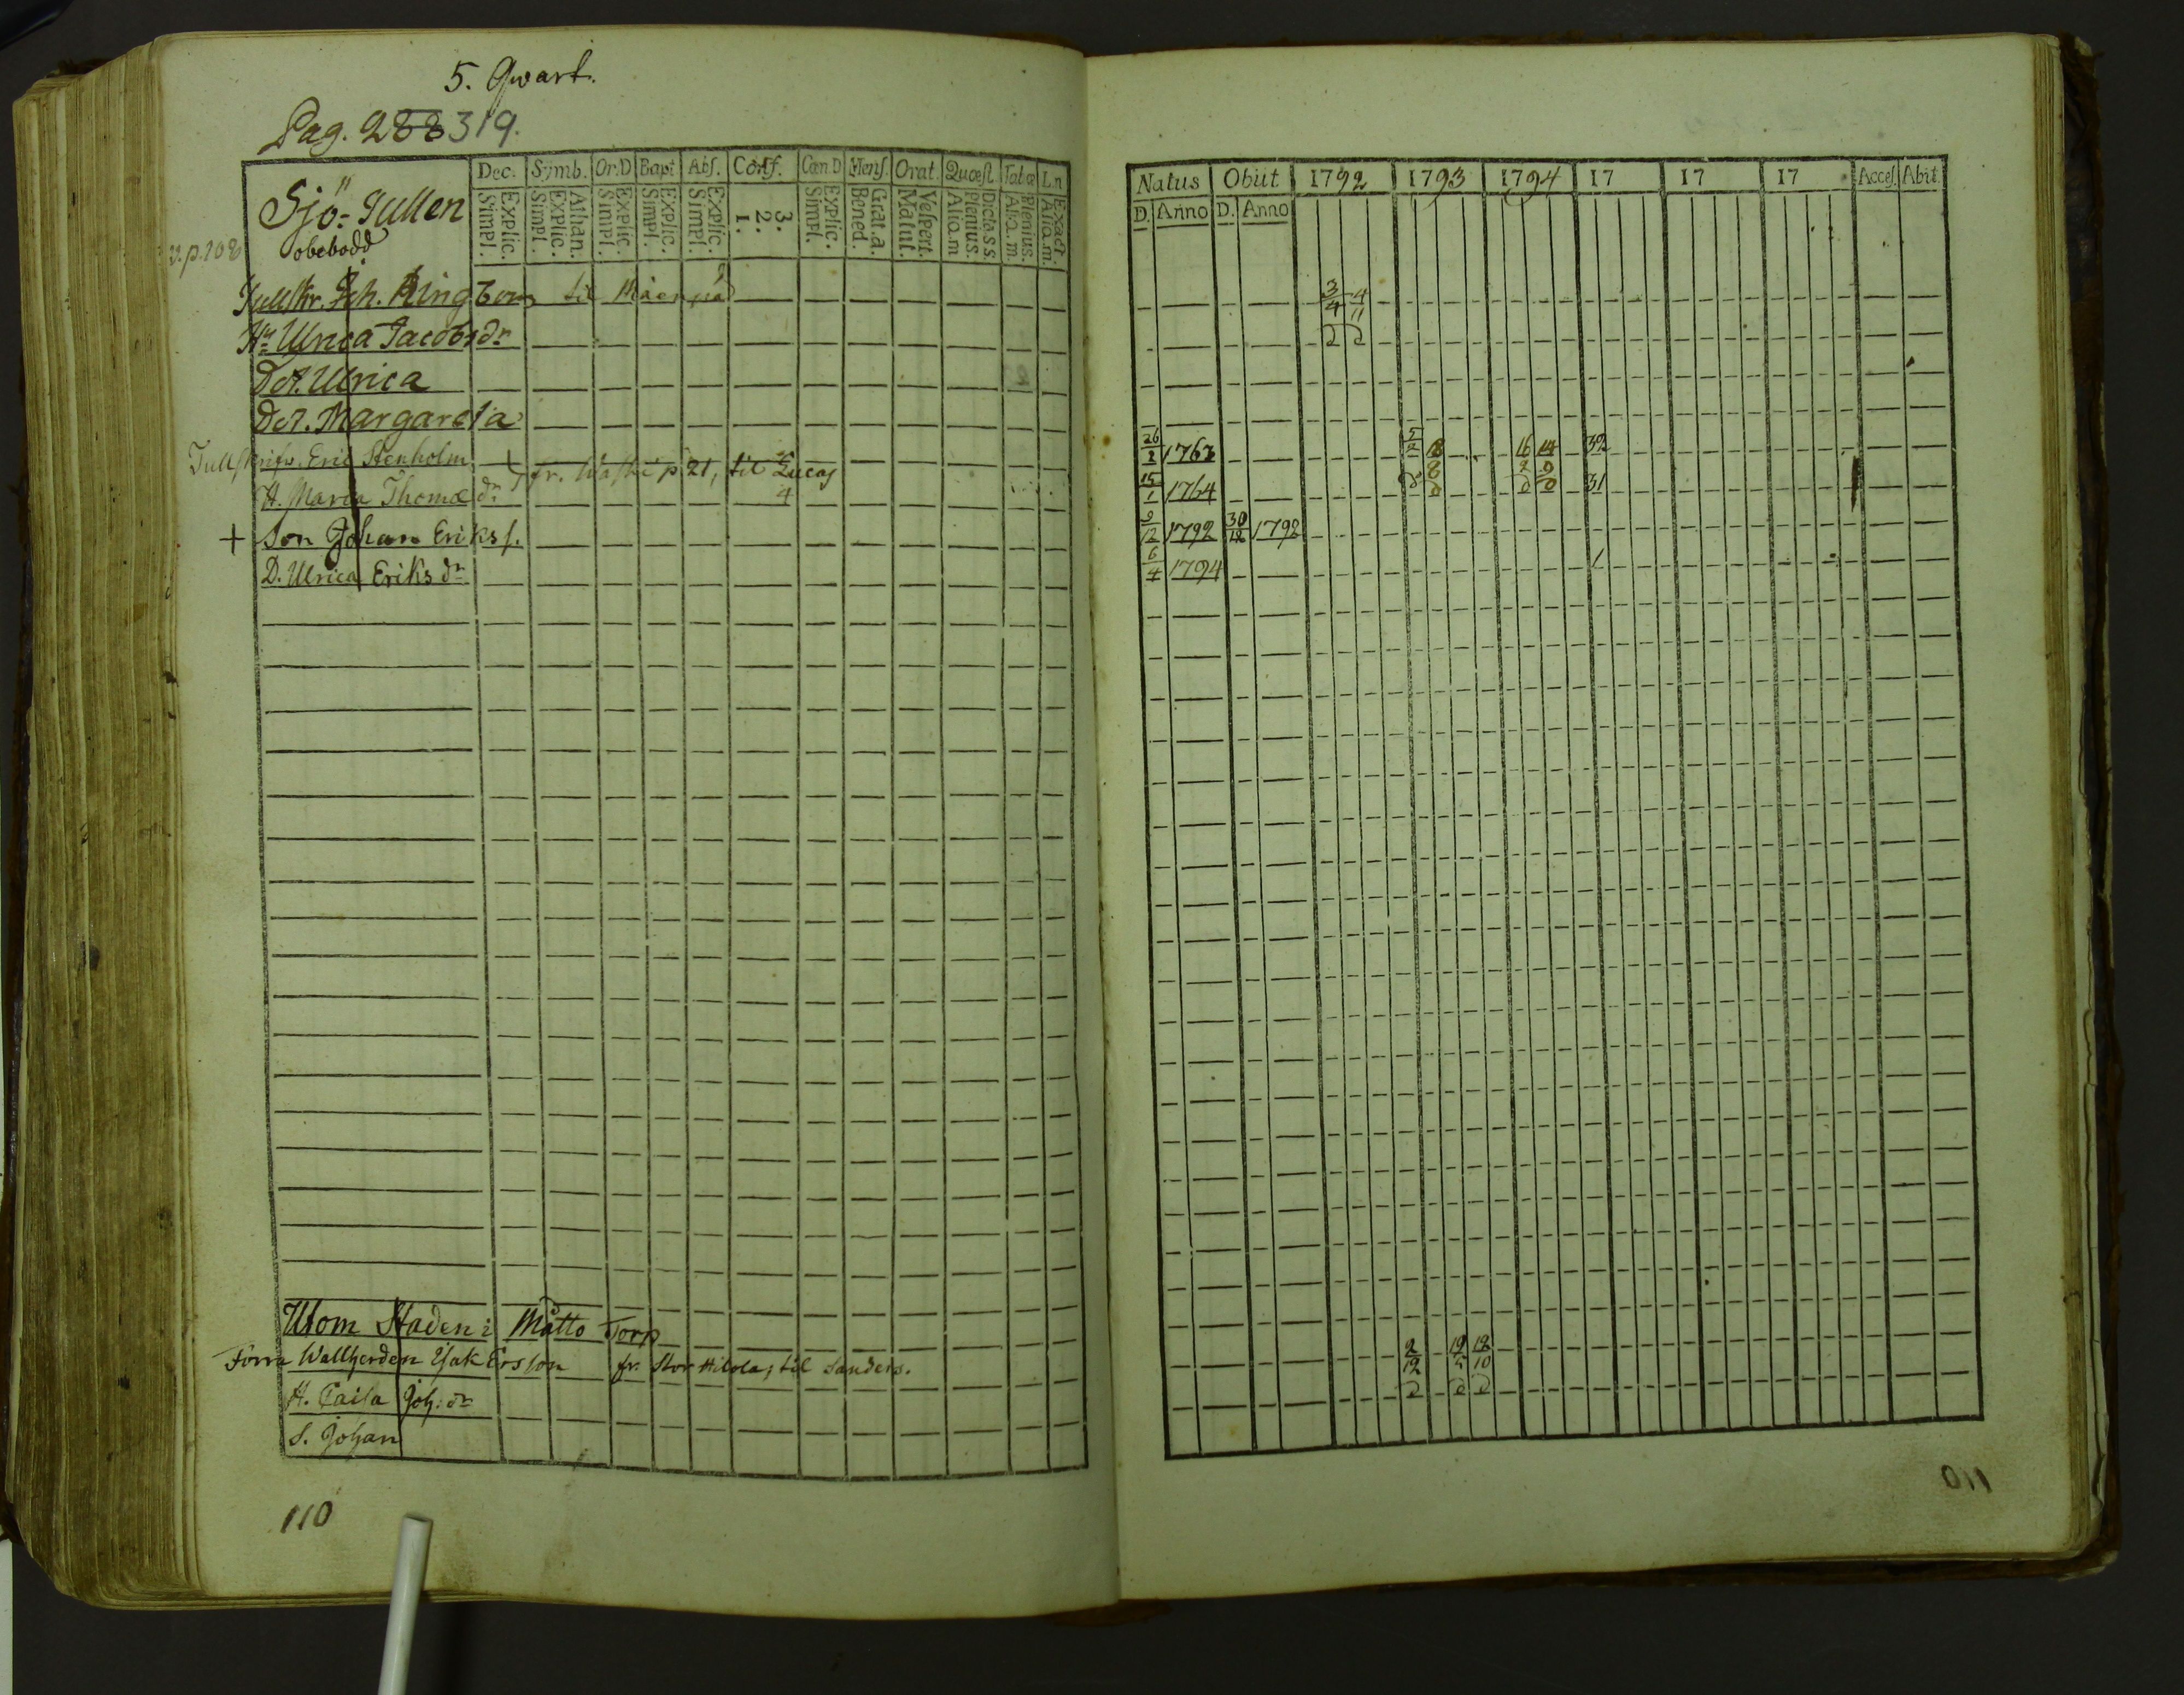 5. Qwart.
Pag. 288 319.
Sjö-Tullen
obebodd
v. p. 108
Dec. Symb. Or.D Bapt. Abs. Conf. Cœn D Mens. Orat. Quæst. Tab.œ L.n
Explic. Simpl. Athan. Explic. Simpl. Explic. Simpl. Explic. Simpl. Explic. Simpl. 3. 2. 1. Explic. Simpl. Grat.a. Bened. Vespert. Matut. Dicta S S. Plenius. Alia.m Plenius. Alia.m. Exact. Alia.m.
Joh. Ringbom til
H. Ulrica Jacobsdr
Dot. Ulrica
Dot. Margareta
Tullskrifv. Eric Stenholm fr. p. 21, til Lucas 4
H. Maria Thomædr
+ Son Johan Eriks s.
D. Ulrica Eriksdr
Utom Staden i Mätto Torp
Förra Wallherden Isak Ersson fr. Stor Hilola, til Sanders.
H. Caisa Joh. dr
S. Johan
110
Natus Obiit 1792 1793 1794 17 17 17 Acces. Abit
D. Anno D. Anno
3/4 4/11
26/2 1763 5/2 18/8 16/2 14 32
15/1 1764 31
9/12 1792 30/12 1792
6/4 1794 1
2/12 19/5 12/10
110